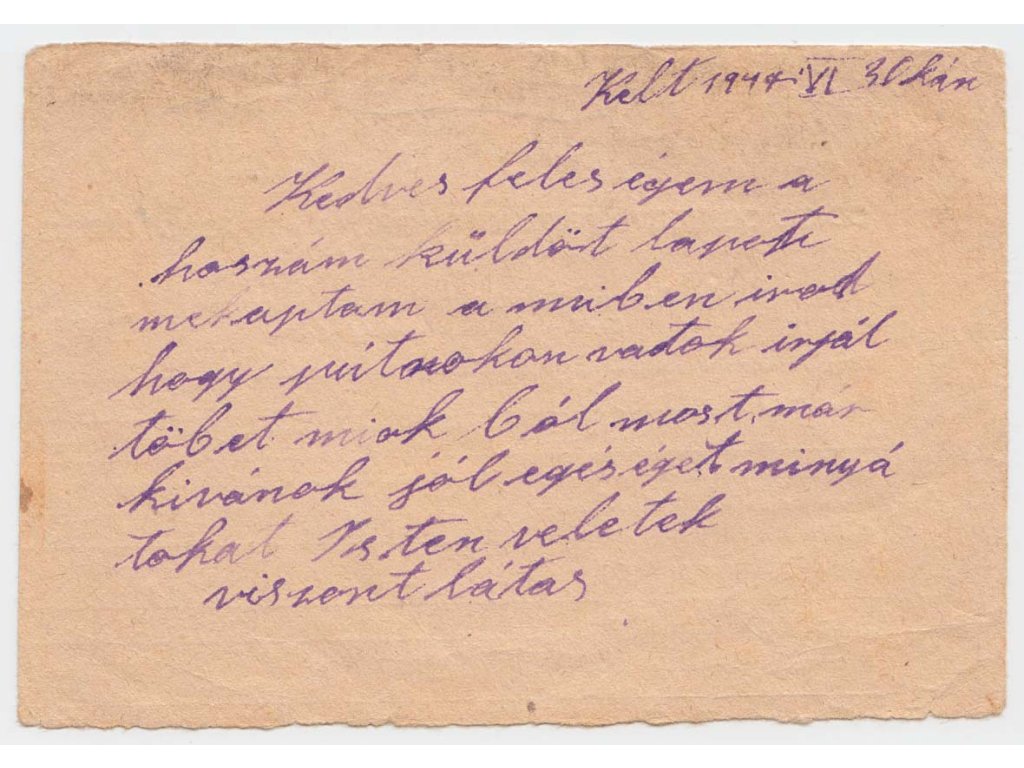 Kelt 1944 VI 30kán
Kedves feleségem a
hoszám küldöt lapot
mekaptam a miben irod
hogy vatok irjál
töbet miok ból most már
kivánok jól egéséget minyá
tokat Isten veletek
viszont látas